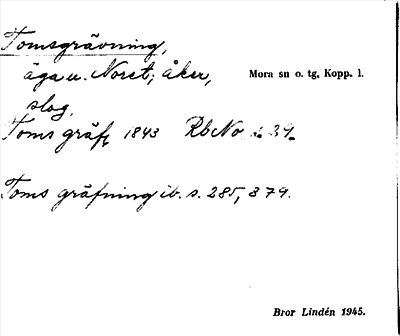 Tomsgrävning,
äga u. Noret; åker,
Mora sn o. tg, Kopp. l.
slog.
Toms gräf, 1843 RbNo s. 39.
Toms gräfning ib. s. 285, 379.
Bror Lindén 1945.